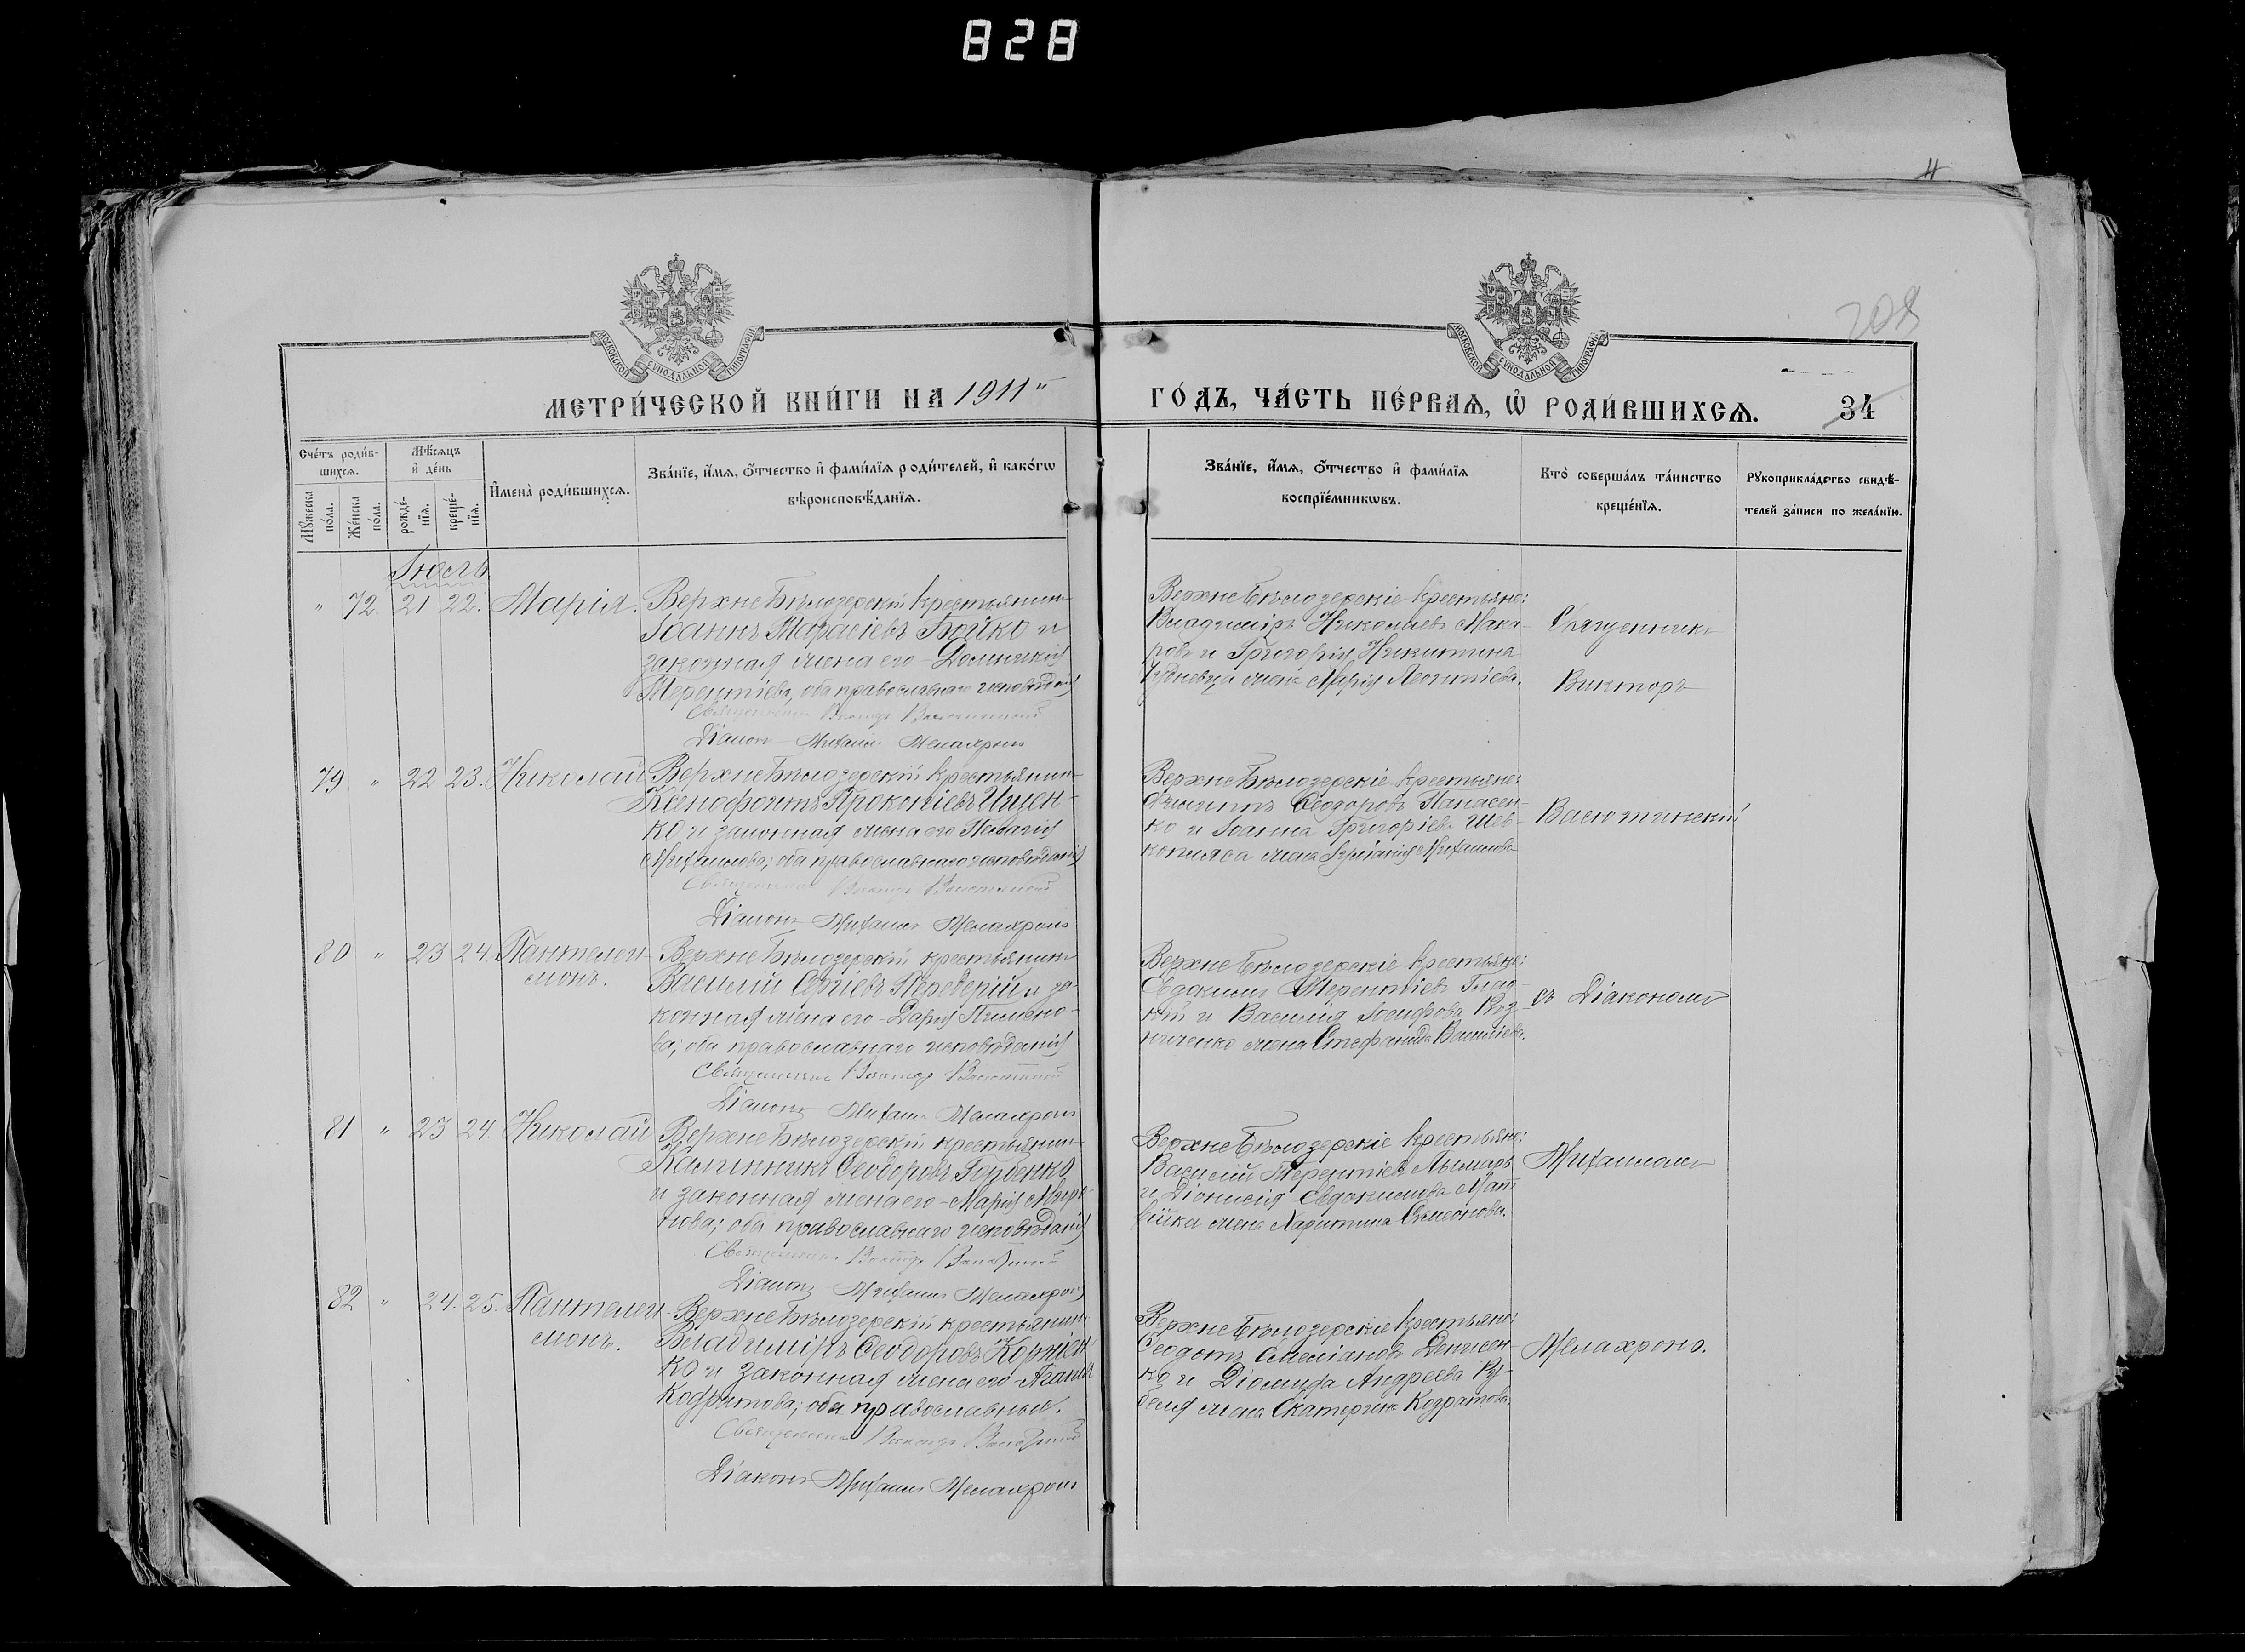 828
208
МЕТРИ́ЧЕСКОЙ КНИ́ГИ НА 1911 ГО́ДЪ, ЧА́СТЬ ПЕ́РВАЯ, Ѡ҆ РОДИ́ВШИХСЯ.
34
МОСКОВСКОЙ СѴНОДАЛЬНОЙ ТИПОГРАФІИ
МОСКОВСКОЙ СѴНОДАЛЬНОЙ ТИПОГРАФІИ
Сче́тъ роди́в-
шихся.
Мꙋ́жеска по́ла.
Же́нска по́ла.
Мѣ́сяцъ
и҆ де́нь
рожде́-
нїя.
креще́-
нїя.
И҆мена̀ роди́вшихся.
Зва́нїе, и҆́мя, ѻ҆́тчество и҆ фами́лїя роди́телей, и҆ како́гѡ
вѣроисповѣ́данїя.
Зва́нїе, и҆́мя, ѻ҆́тчество и҆ фами́лїя
воспрїе́мникѡвъ.
Кто̀ соверша́лъ та́инство
креще́нїя.
Рꙋкоприкла́дство свидѣ́-
телей за́писи по жела́нїю.
Іюль
" 72. 21 22. Марія.
ВерхнеБѣлозерскій крестьянинъ
Іоаннъ Тарасіевъ Бойко и
законная жена его Домникія
Терентіева, оба православнаго исповѣданія
Священникъ Викторъ Васютинскій
Діаконъ Михаилъ Мелахронъ
ВерхнеБѣлозерскіе крестьяне:
Владиміръ Николаевъ Мака-
ровъ и Григорія Никитина
жена Марія Леонтіева.
Священникъ
Викторъ
79 " 22 23. Николай
ВерхнеБѣлозерскій крестьянинъ
Ксенофонтъ Прокопіевъ Ищен-
ко и законная жена его Пелагія
Михаилова; оба православнаго исповѣданія
Священникъ Викторъ Васютинскій
Діаконъ Михаилъ Мелахронъ
ВерхнеБѣлозерскіе крестьяне:
Филиппъ Ѳеодоровъ Панасен-
ко и Іоанна Григоріева Шев-
жена Михаилова
Васютинскій
80 " 23 24. Пантелеи-
монъ.
ВерхнеБѣлозерскій крестьянинъ
Василій Сергіевъ Передерій и за-
конная жена его Дарія Пимено-
ва; оба православнаго исповѣданія
Священникъ Викторъ Васютинскій
Діаконъ Михаилъ Мелахронъ
ВерхнеБѣлозерскіе крестьяне:
Евдокимъ Терентіевъ Глад-
кій и Василія Іосифова Роз-
ниченко жена Стефанида Василіева.
съ Діакономъ
81 " 23 24. Николай
ВерхнеБѣлозерскій крестьянинъ
Калинникъ Ѳеодоровъ Горбенко
и законная жена его Марія Март-
нова; оба православнаго исповѣданія
Священникъ Викторъ Васютинскій
Діаконъ Михаилъ Мелахронъ
ВерхнеБѣлозерскіе крестьяне:
Василій Терентіевъ Лымарь
и Діонисія Евдокимова Мат-
війка жена Харитина Симеонова.
Михаиломъ
82 " 24. 25. Пантелеи-
монъ.
ВерхнеБѣлозерскій крестьянинъ
Владиміръ Ѳеодоровъ Корніен-
ко и законная жена его
Кодратова; оба православные.
Священникъ Викторъ Васютинскій
Діаконъ Михаилъ Мелахронъ
ВерхнеБѣлозерскіе крестьяне:
Ѳеодотъ Емеліановъ Денисен-
ко и Діомида Андреева Ру-
жена Екатерина Кодратова.
Мелахроно.